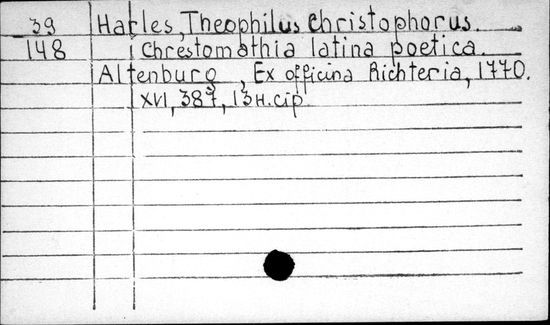 39 Harles, Theophilus Christophorus.
148 Chrestomathia latina poetica.
Altenburg, Ex officina Richteria, 1770.
XVI, 387, 13 н.стр.